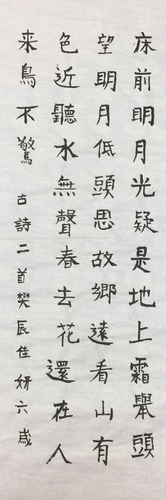 床前明月光疑是地上霜舉頭
望明月低頭思故鄉遠看山有
色近聽水無聲春去花還在人
来鳥不驚 古詩二首樊辰佳妍六歲